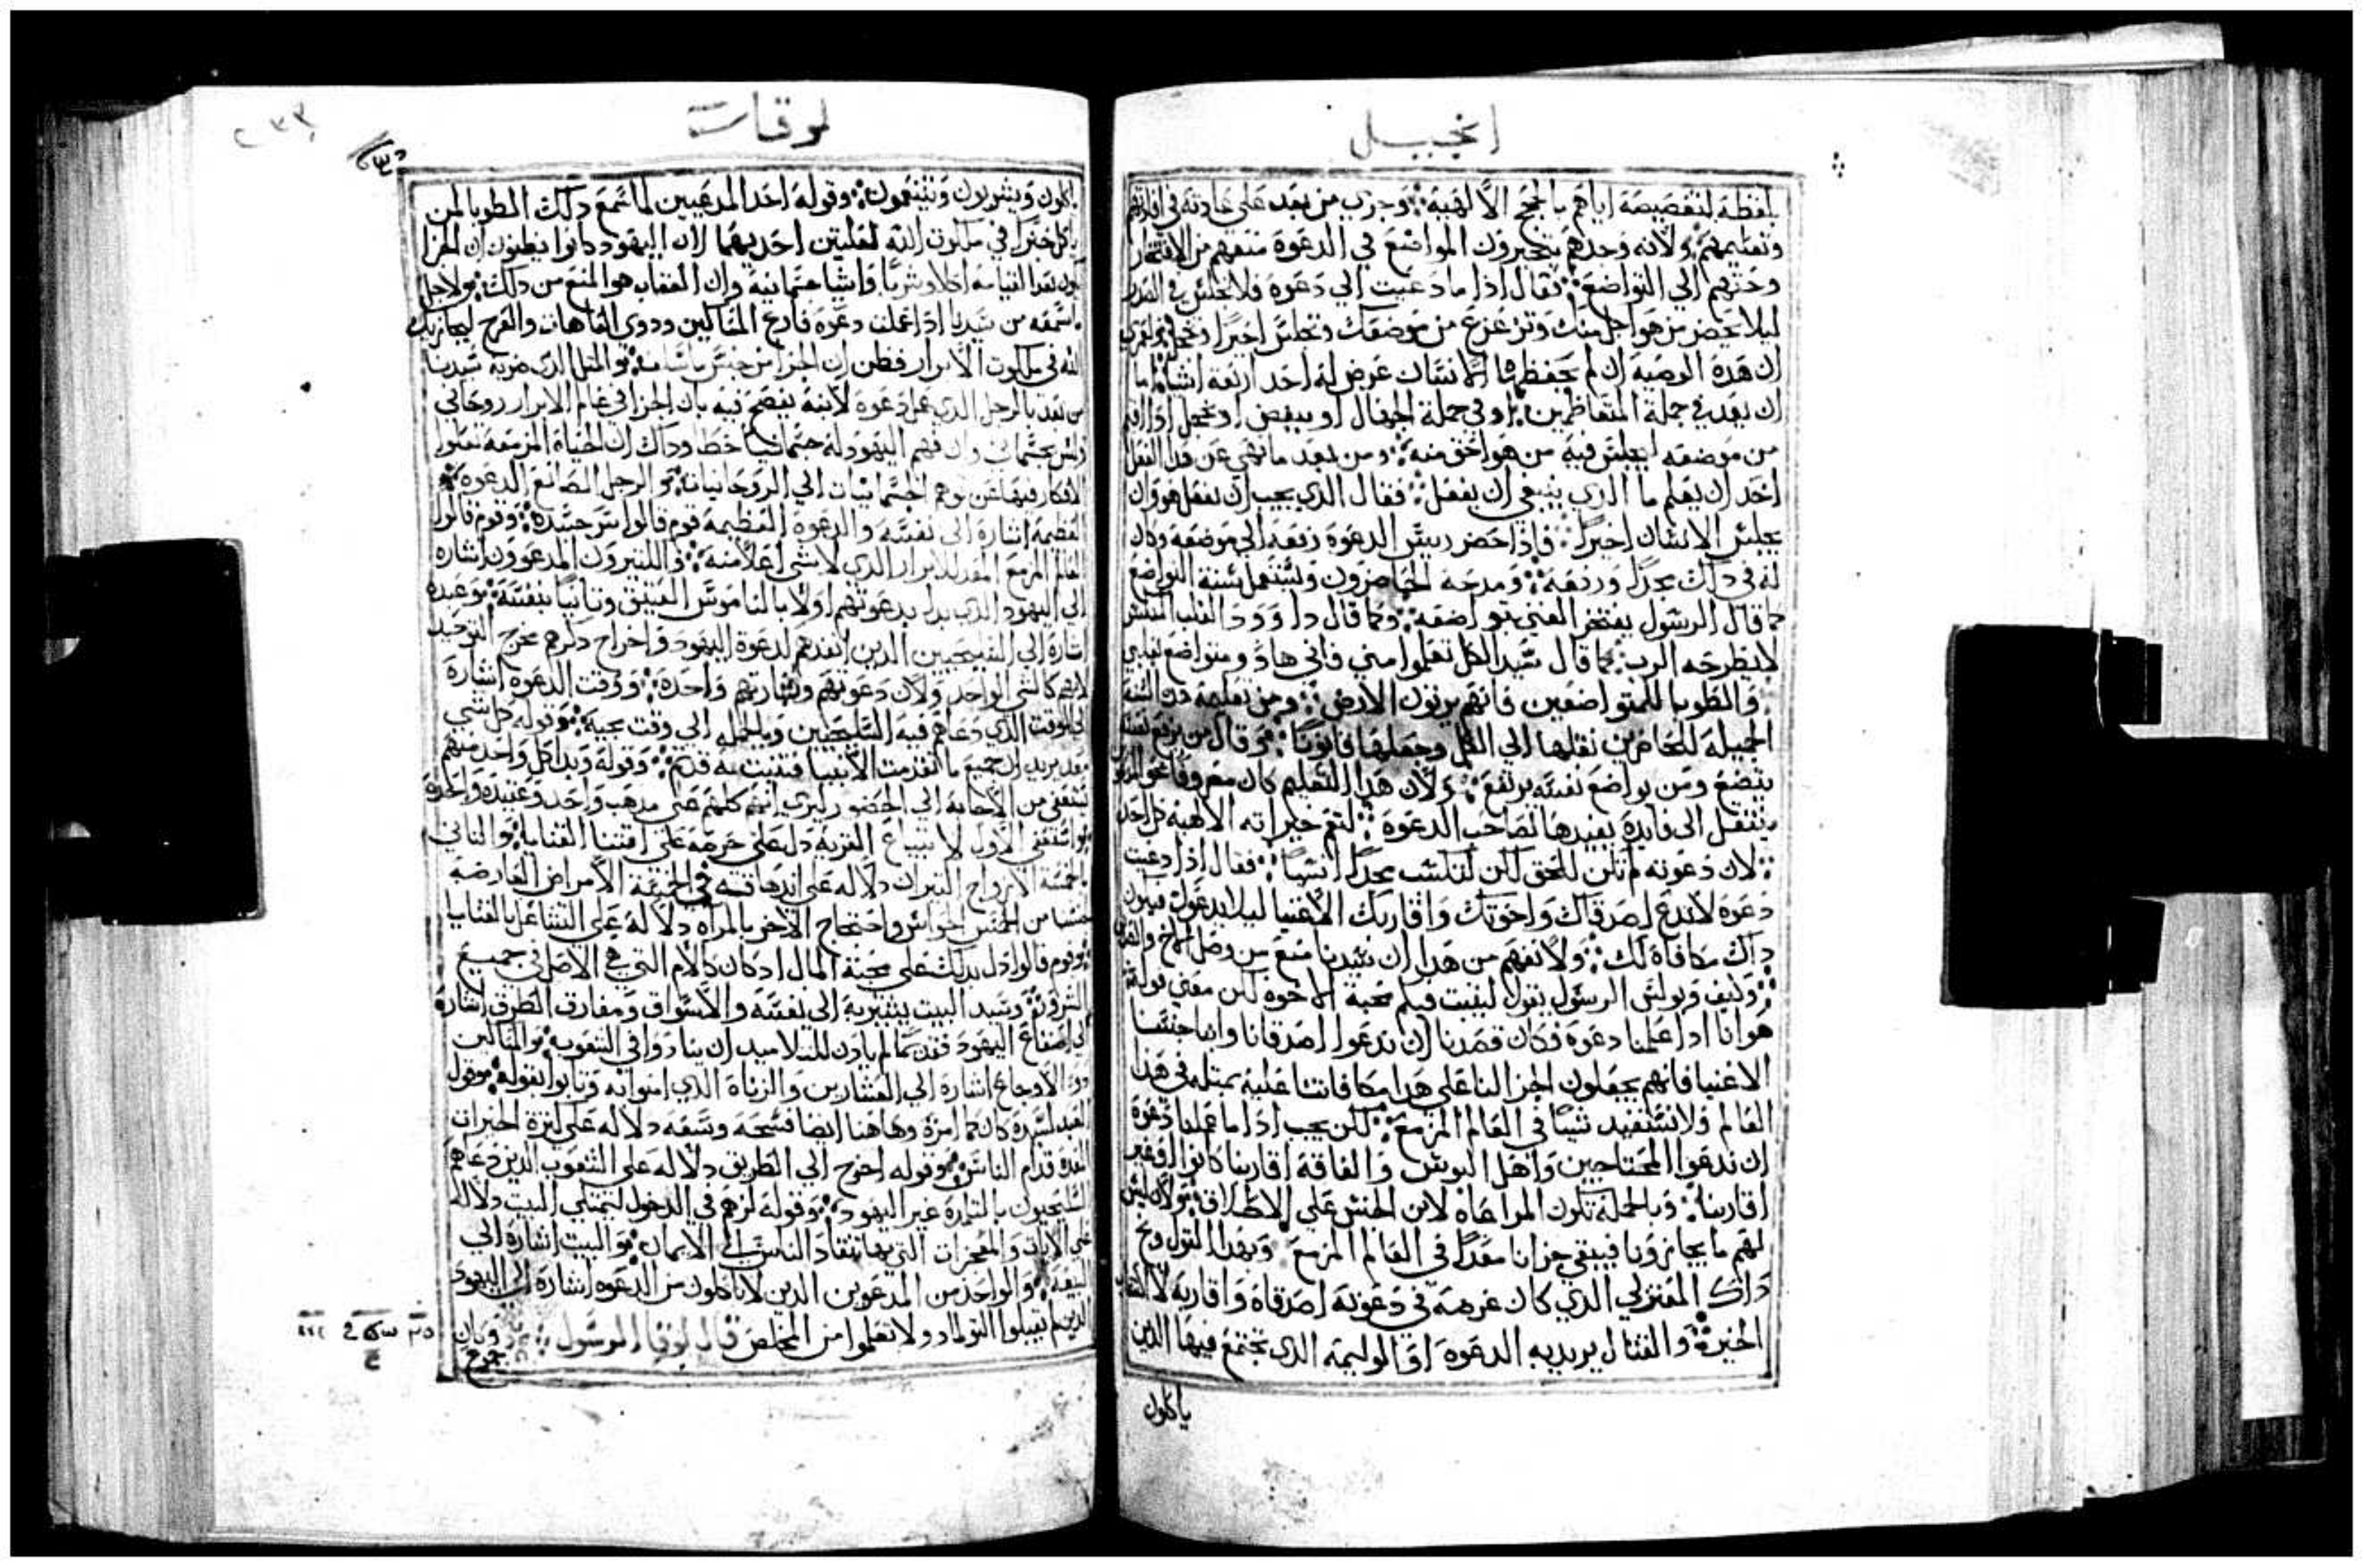 انجيل
بلفظة لتقصيصة اياهم بالحجج الالهية وجري من بعد علي عادته في افادتهم
وتعليمهم ولانه وجدهم يتخيرون المواضع في الدعوة منعهم من الافتخار
وحثهم الي التواضع فقال اذا ما دعيت الي دعوة فلا تجلس في الصدر
ليلا يحضر من هو اجل منك وتزعزع من موضعك وتجلس اخيرا وتخجل
ان هذه الوصية ان لم يحفظها الانسان عرض له احد اربعة اشيا اما
ان يعد في جملة المتعاظمين او في جملة الجهال او يبغض او يخجل اذا اقيم
من موضعه ليجلس فيه من هو احق منه ومن بعد ما نهي عن هذا الفعل
اخذ ان يعلم ما الذي ينبغي ان يفعل فقال الذي يجب ان نفعل هو ان
يجلس الانسان اخيرا فاذا حضر رييس الدعوة رفعه الي موضعه وكان
له في ذلك مجدا ورفعة ومدحه الحاضرون وتستعمل سنة التواضع
كما قال الرسول يفتخر الغني بتواضعه وكما قال داوود القلب المنكسر
لا يطرحه الرب كما قال سيد الكل تعلموا مني فاني هاد ومتواضع بقلبي
والطوبا للمتواضعين فانهم يرثون الارض ومن تعليمه هذه السنة
الجميلة للحاضرين نقلها الي الكل وجعلها قانونا وقال من يرفع نفسه
يتضع ومن يواضع نفسه يرتفع ولان هذا التعليم كان معروفا نحو المدعوين
ينتقل الي فايدة يفيدها لصاحب الدعوة لتعم خيراته الالهية كل احد
لان دعوته لم تكن للحق لكن لتكسب مجدا انسيا فقال اذا دعيت
دعوة لا تدع اصدقاك واخوتك واقاربك الاغنيا ليلا يدعوك فيكون
ذاك مكافاة لك ولا نفهم من هذا ان سيدنا منع من وصل الاخ والقرابة
وكيف وبولس الرسول يقول ليثبت فيكم محبة الاخوة لكن معني قوله
هو انا اذا عملنا دعوة وكان قصدنا ان ندعوا اصدقانا وابنا جنسنا
الاغنيا فانهم يجعلون الجزا لنا علي هذا مكافاتنا عليه بمثله في هذا
العالم ولا نستفيد شيا في العالم المزمع لكن يجب اذا ما عملنا دعوة
ان ندعوا المحتاجين واهل البوس والفاقة اقاربنا كانوا او غير
اقاربنا وبالجملة تكون المراعاة لابن الجنس علي الاطلاق ولان ليس
لهم ما يجازونا فيبقي جزانا معدا في العالم المزمع وبهذا القول وبخ
ذاك المعتزلي الذي كان غرضه في دعوته اصدقاه واقاربه لا
الخيرة والقتال يريد به الدعوة او الوليمة الذي تجتمع فيها الذين
ياكلون
لوقاس
ياكلون ويشربون ويتنعمون وقوله احد المدعيين لما سمع ذلك الطوبا لمن
ياكل خبزا في ملكوت الله لعلتين احديهما لان اليهود كانوا يظنون ان الجزا
يكون بعد القيامة اكلا وشربا واشيا جسمانية وان العقاب هو المنع من ذلك ولاجل
ما سمعه من سيدنا اذا عملت دعوة فادع المساكين وذوي العاهات والعرج ليجازيك
الله في ملكوت الابرار فظن ان الجزا من جنس ما والمثل الذي ضربه سيدنا
من بعد بالرجل الذي عمل دعوة لابنه يفصح فيه بان الجزا في عالم الابرار روحاني
وليس بجسماني وان فهم اليهود له جسمانيا خطا وذاك ان الحياة المزمعة تعلوا
الافكار فيها عن توهم الجسمانيات الي الروحانيات والرجل الصانع الدعوة
العظيمة اشارة الي نفسه والدعوة العظيمة قوم قالوا سر جسده وقوم قالوا
العالم المزمع المعد للابرار الذي لا شي اعلا منه والكثيرون المدعوون اشارة
الي اليهود الذي بدا بدعوتهم اولا بالناموس العتيق وثانيا بنفسه وعبده
اشارة الي السليحيين الذين انفدهم لدعوة اليهود واخراج ذكرهم مخرج التوحيد
لانهم كالشي الواحد ولان دعوتهم وبشارتهم واحدة ووقت الدعوة اشارة
الي الوقت الذي دعاهم فيه السليحيين وبالجملة الي وقت مجيه وقوله كل شي
معد يريد ان جميع ما تقدمت الانبيا فتنبت به قد تم وقوله وبدا كل واحد منهم
يستعفي من الاجابة الي الحضور ليري انهم كلهم علي مذهب واحد وعقيدة واحدة
واستعفي الاول لابتياع القرية دل علي حرصه علي اقتنا القنايا والثاني
بخمسة الازواج البقران دلالة علي
من الخمس الحواس واحتجاج الاخر بالمراه دلالة علي التشاغل بالقنايا
وقوم قالوا دل بذلك علي محبة المال اذ كان كالام التي هي الاصل في جميع
الشرور وسيد البيت يشير به الي نفسه والاسواق ومفارق الطرق اشارة
الي اصقاع اليهود فمن ثم لم ياذن للتلاميد ان ينادوا في الشعوب والمساكين
وذو الاوجاع اشارة الي العشارين والزناة الذي امنوا به وتابوا بقوله وقول
العبد لسيده كان كما امرت وهاهنا ايضا فسحة وسعة دلالة علي كثرة الخيرات
المعدة قدام الناس وقوله اخرج الي الطريق دلالة علي الشعوب الذين دعاهم
السليحيون بالبشارة غير اليهود وقوله لزهم في الدخول ليمتلي البيت دلالة
علي الايات والمعجزات التي بها تنقاد الناس الي الايمان والبيت اشارة الي
البيعة والواحد من المدعوين الذين لا ياكلون من الدعوة اشارة الي اليهود
الذين لم يقبلوا التولماد ولا تعلموا من المخلص قال لوقا الرسول وكان
جموع